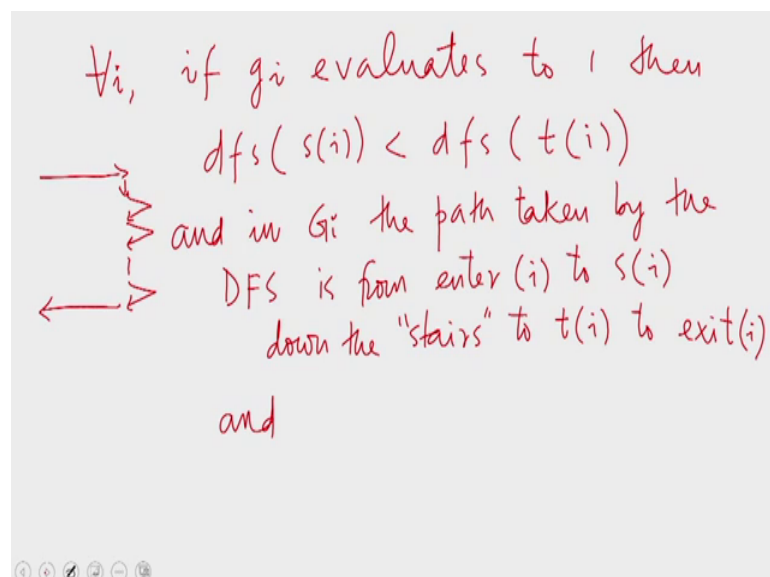 ∀i, if gi evaluates to 1 then
dfs(s(i)) < dfs(t(i))
and in Gi the path taken by the
DFS is from enter(i) to s(i)
down the "stairs" to t(i) to exit(i)
and